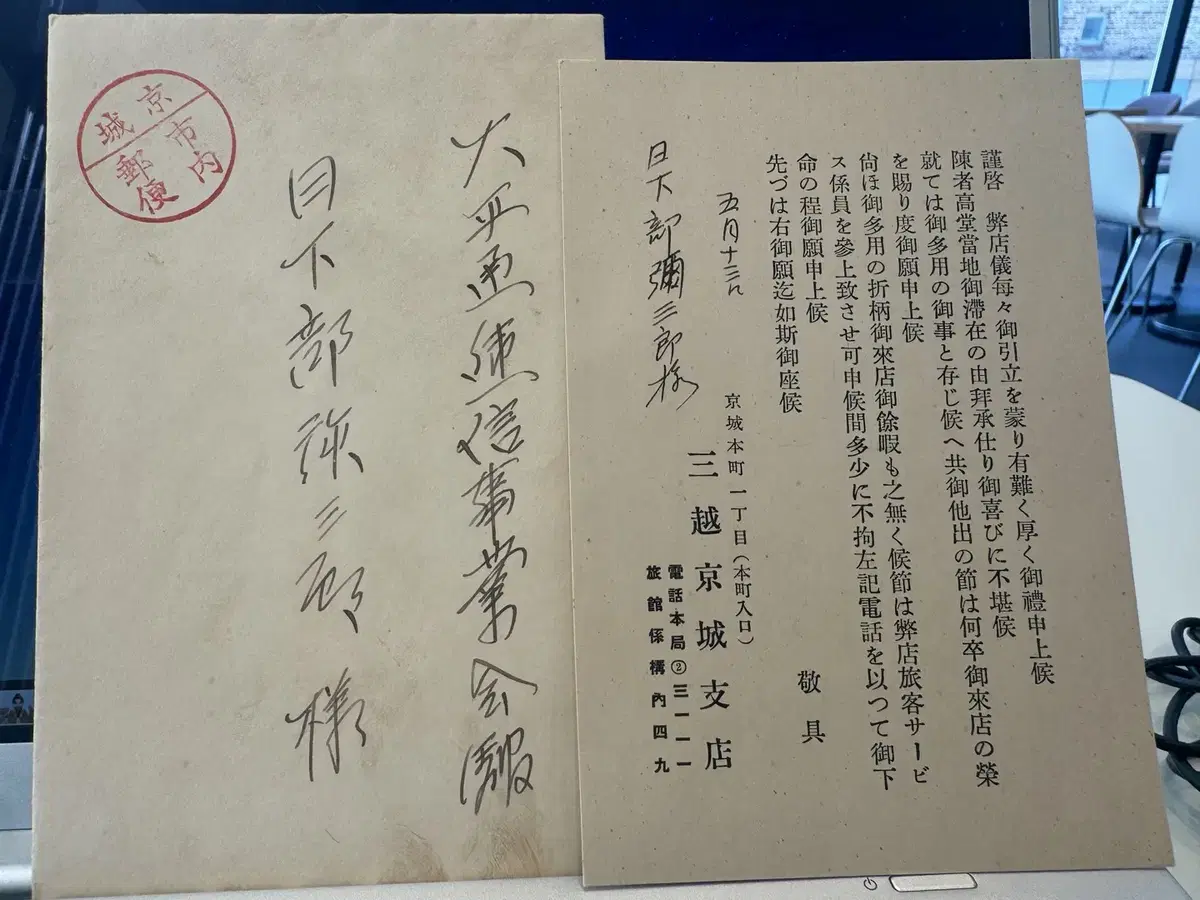 京城
市内
郵便
大平通逓信事業会館
日下部弥三郎様
謹啓 弊店儀每々御引立を蒙り有難く厚く御禮申上候
陳者高堂當地御滯在の由拜承仕り御喜びに不堪候
就ては御多用の御事と存じ候へ共御他出の節は何卒御來店の榮
を賜り度御願申上候
尙ほ御多用の折柄御來店御餘暇も之無く候節は弊店旅客サービ
ス係員を參上致させ可申候間多少に不拘左記電話を以つて御下
命の程御願申上候
先づは右御願迄如斯御座候
敬具
五月十三日
京城本町一丁目(本町入口)
三越京城支店
電話本局②三一一一
旅館係構內四九
日下部彌三郎様